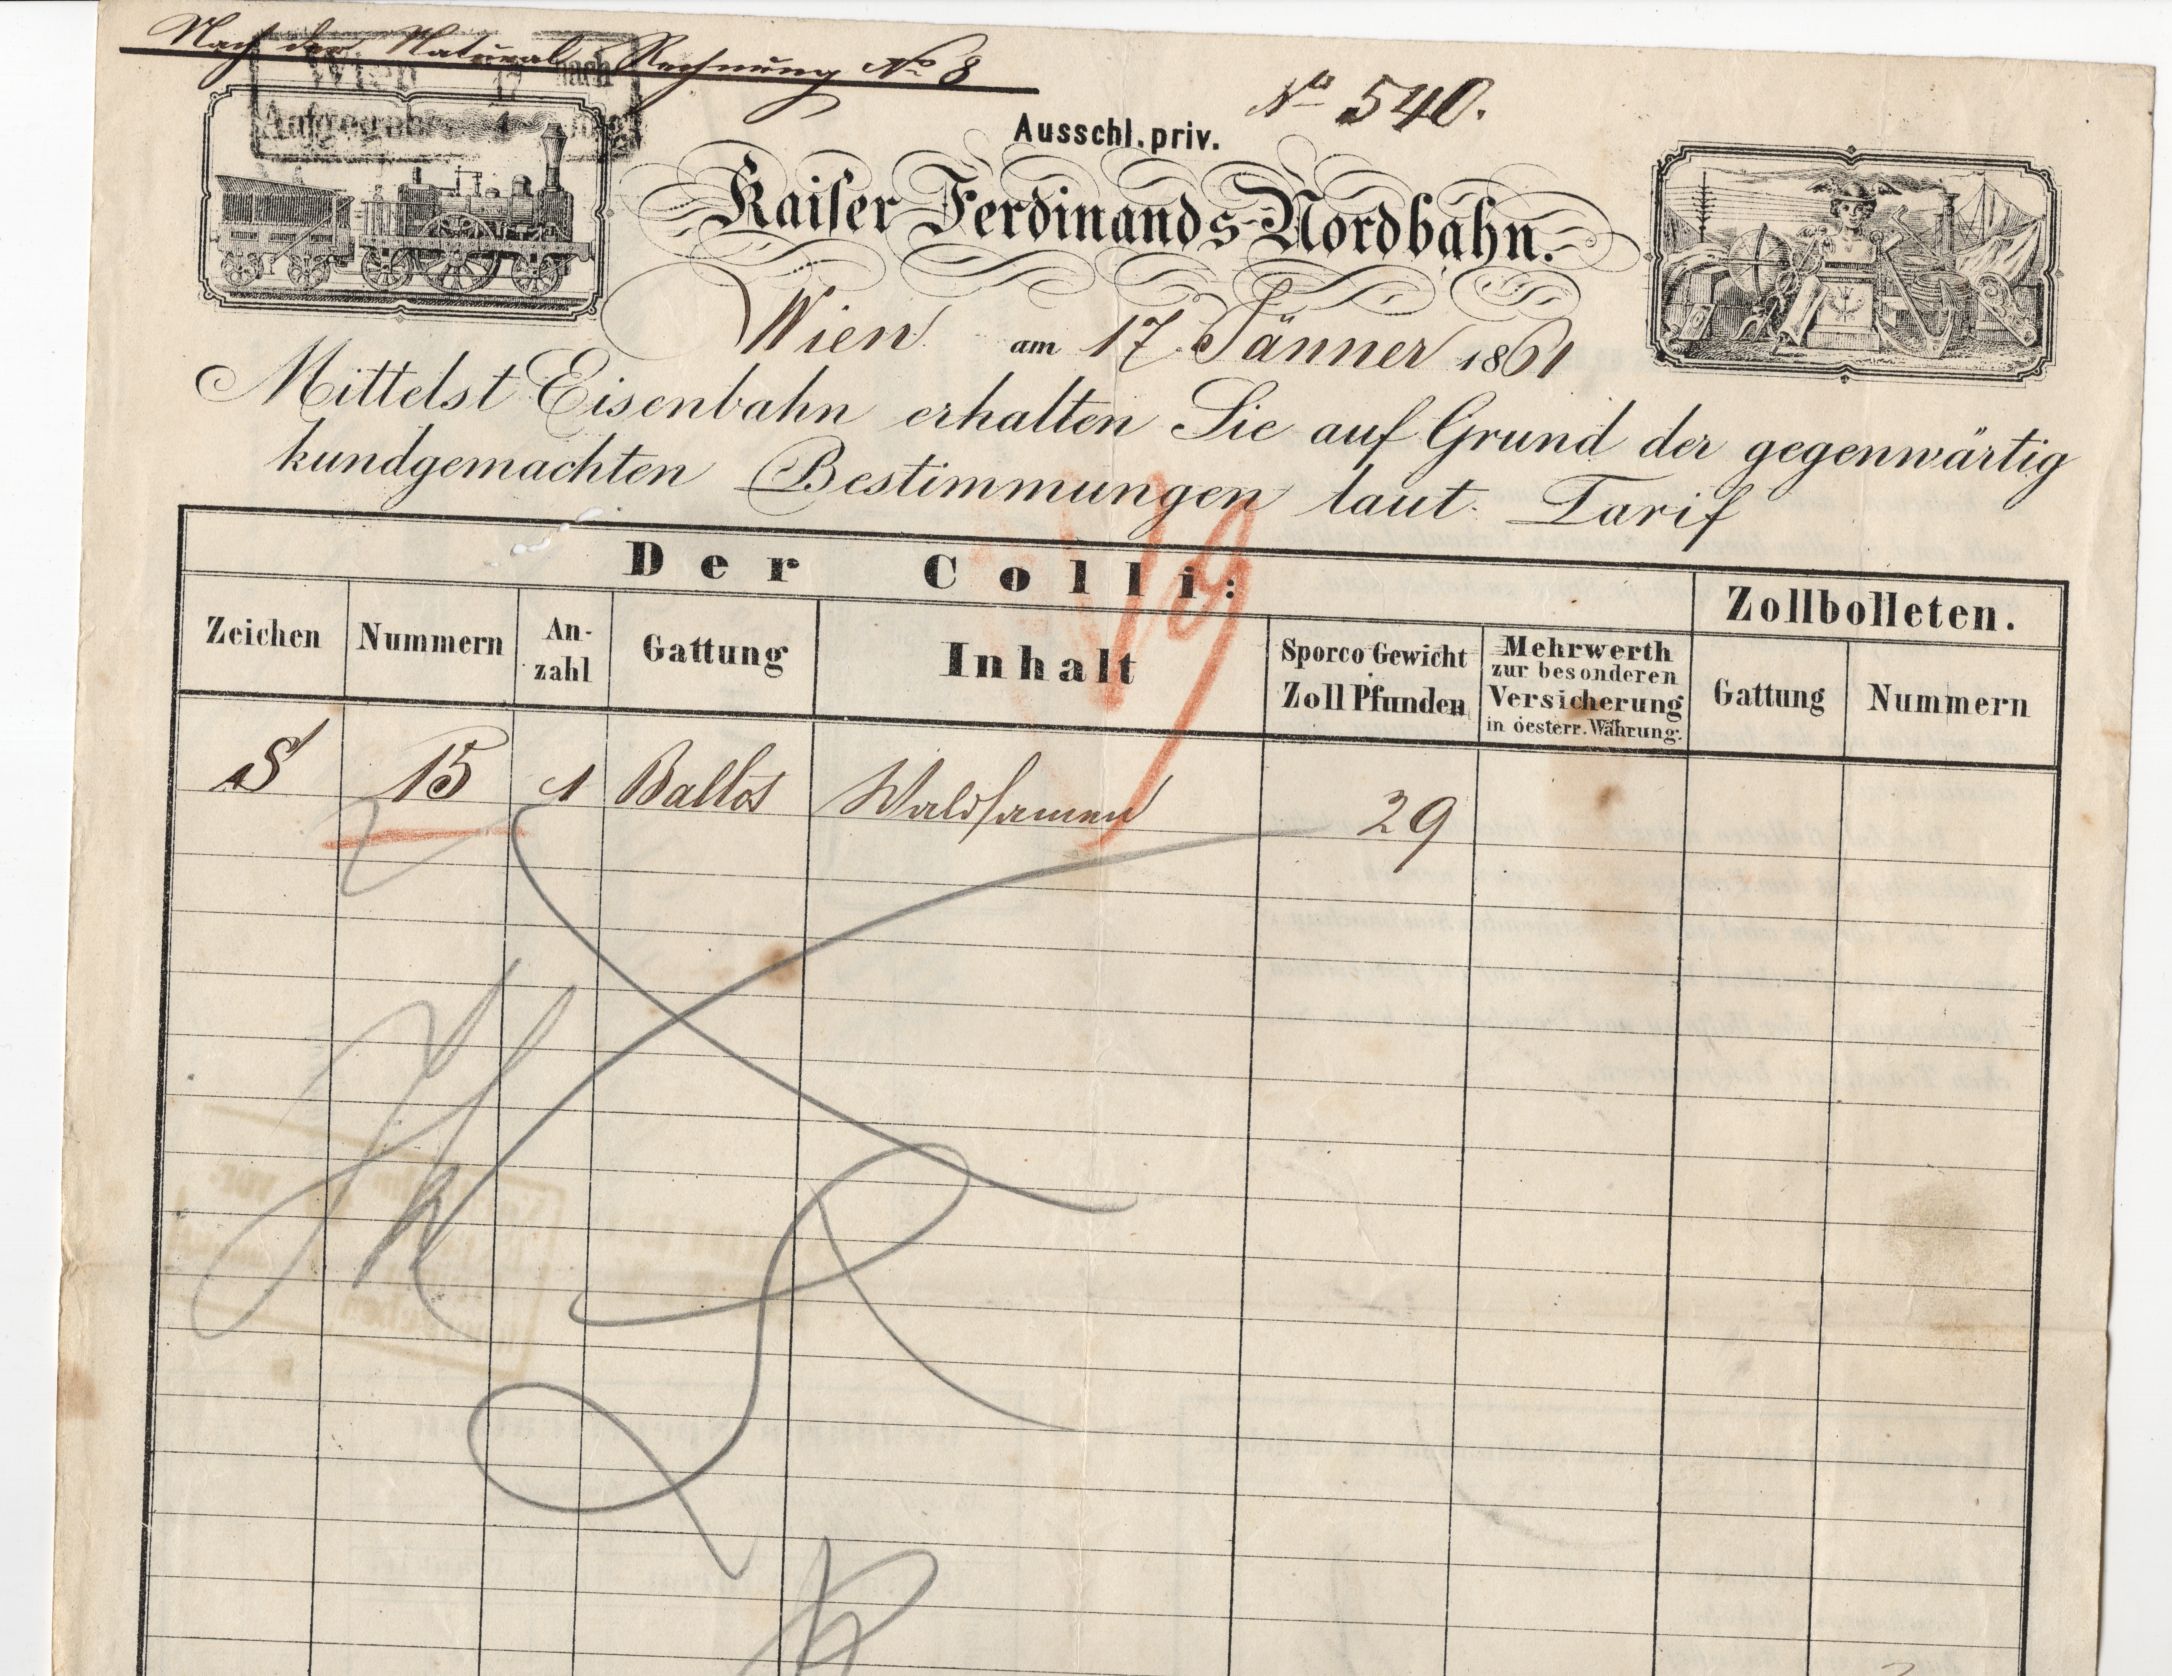 Nach der Natural Rechnung No 8
Wien 17 nach
Aufgegeben
No 540.
Ausschl. priv.
Kaiser Ferdinands-Nordbahn.
Wien am 17. Jänner 1861
Mittelst Eisenbahn erhalten Sie auf Grund der gegenwärtig
kundgemachten Bestimmungen laut Tarif
19
Der Colli:
Zollbolleten.
Zeichen Nummern An-zahl Gattung Inhalt Sporco Gewicht Zoll Pfunden Mehrwerth zur besonderen Versicherung in oesterr. Währung. Gattung Nummern
S 15 1 Ballot Waldsamen 29